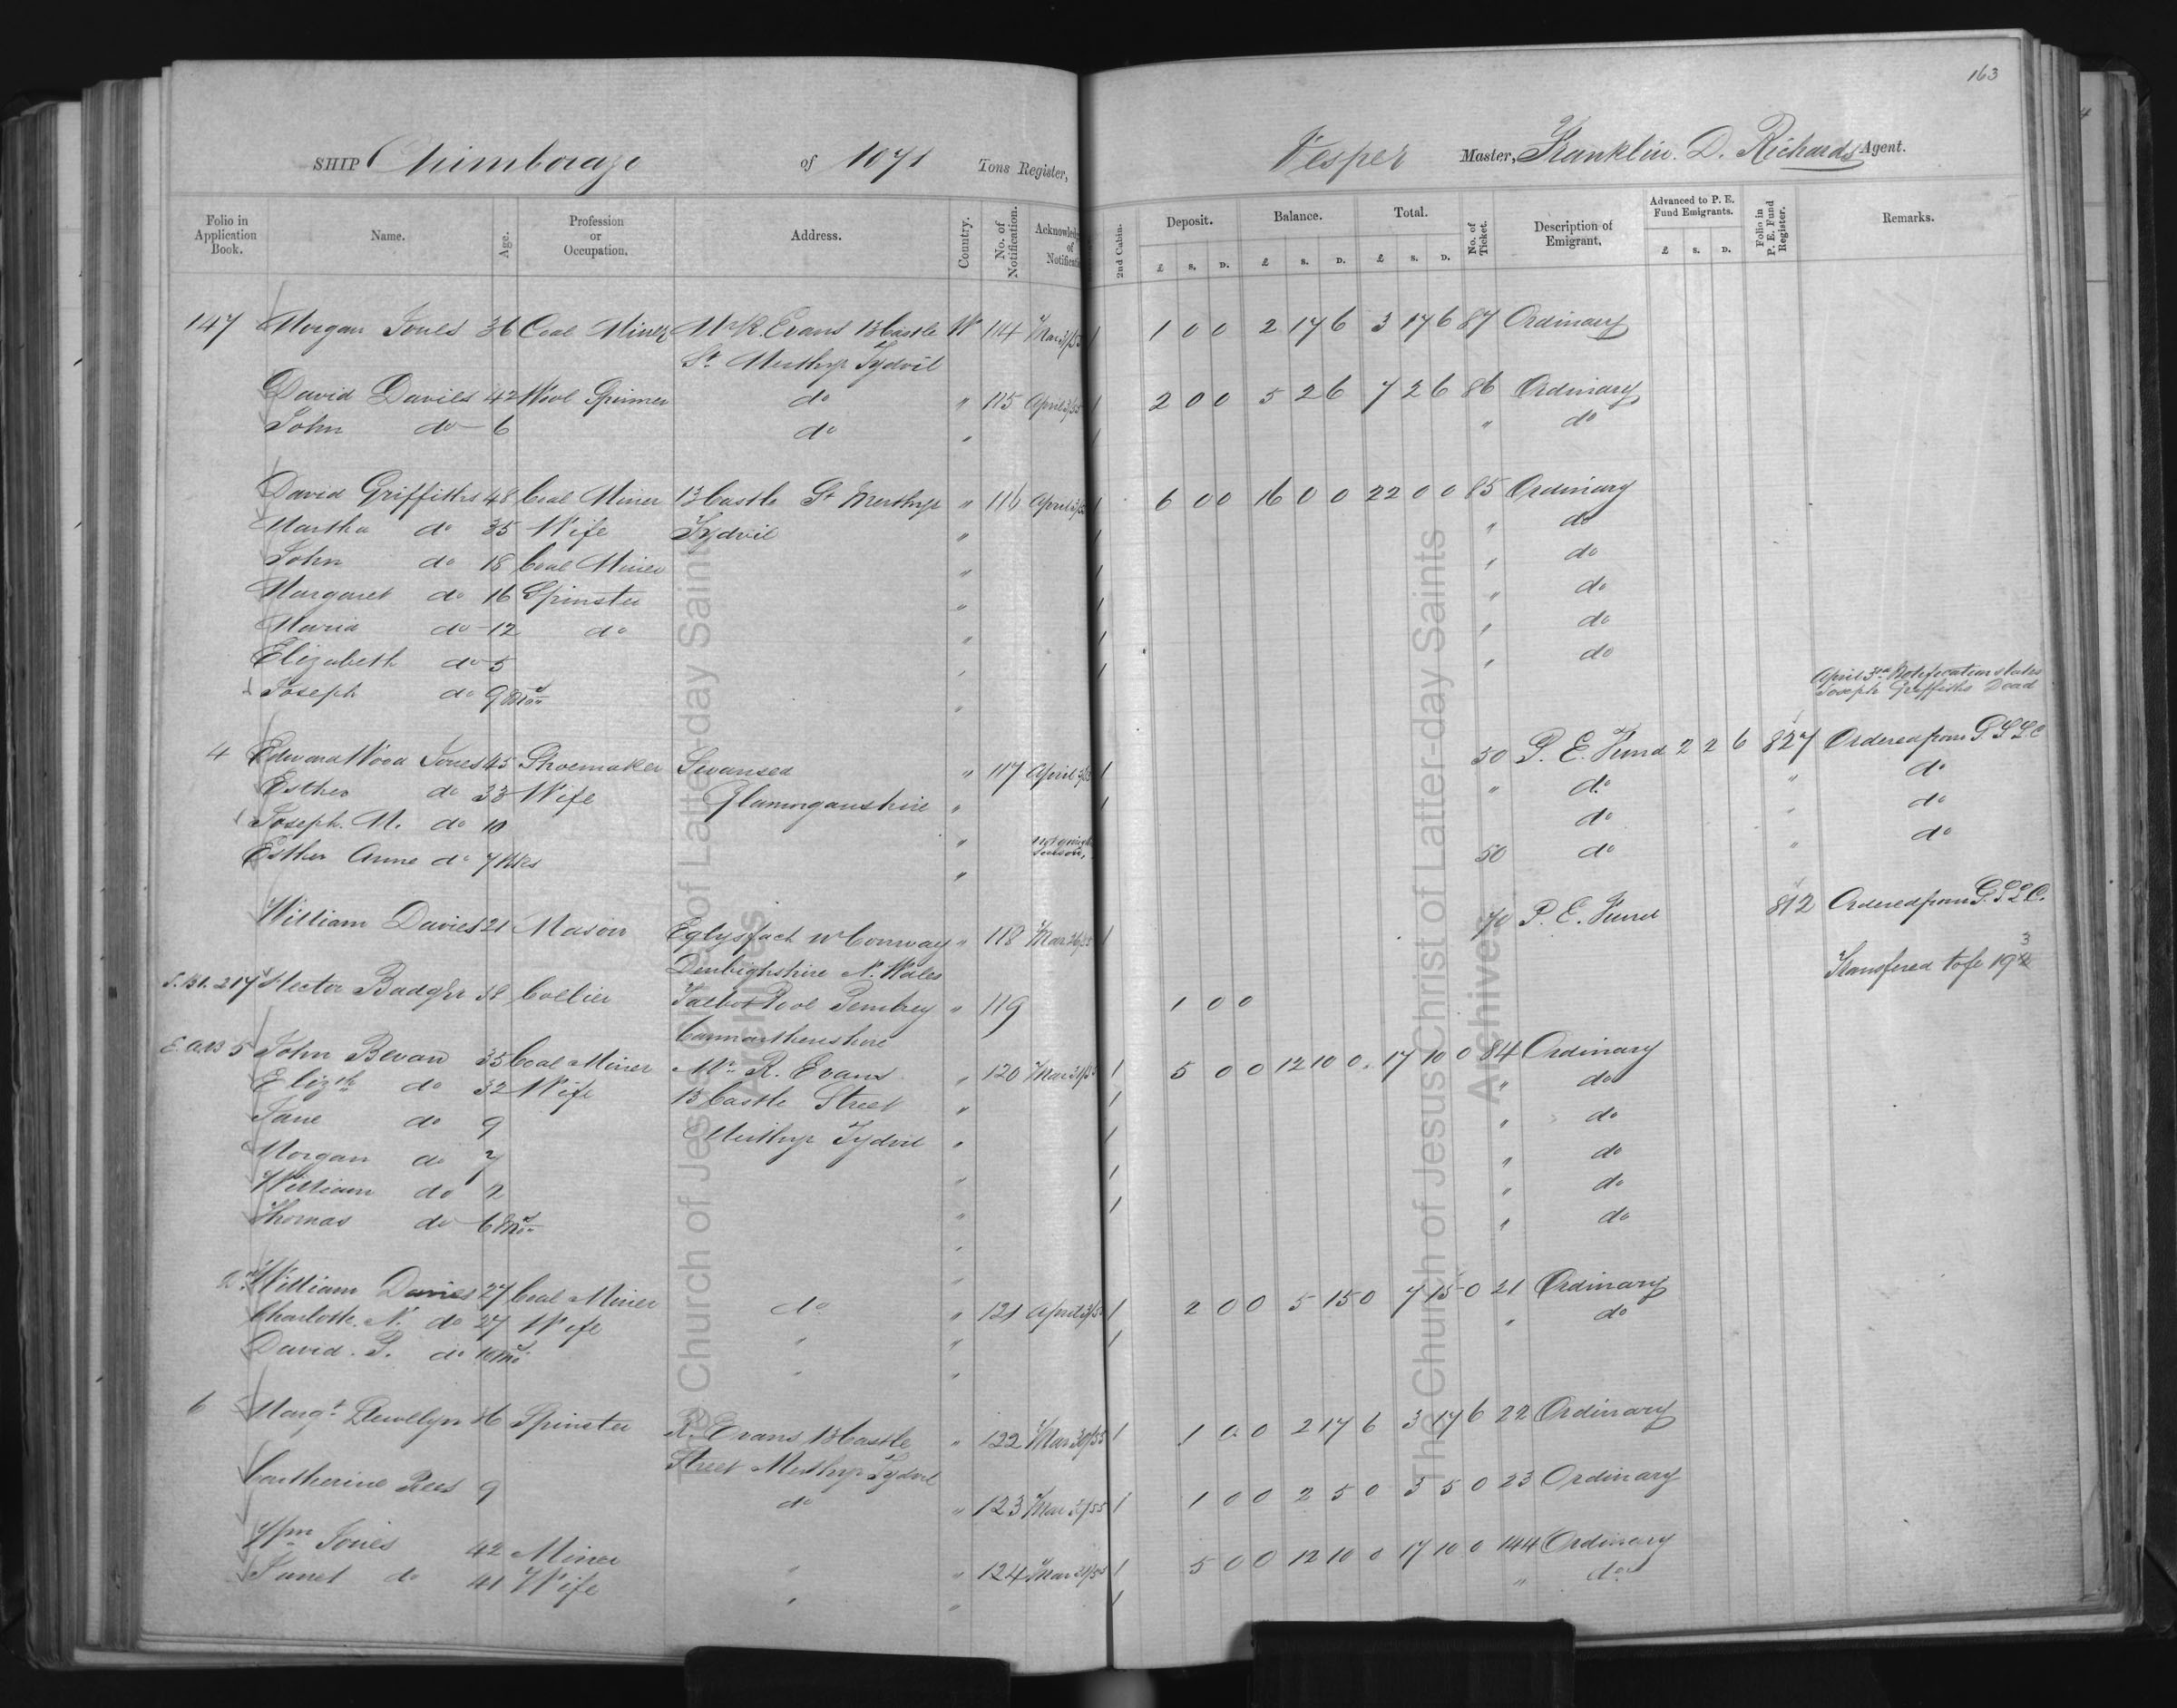 163
SHIP Chimborazo of 1071 Tons Register, Vesper Master, Franklin. D. Richards Agent.
Folio in Application Book. Name. Age. Profession or Occupation. Address. Country. No. of Notification. Acknowledg of Notificati 2nd Cabin. Deposit. Balance. Total. No. of Ticket. Description of Emigrant. Advanced to P. E. Fund Emigrants. Folio in P. E. Fund Register. Remarks.
£ S. D. £ S. D. £ S. D. £ S. D.
147 Morgan Jones 36 Coal Miner Mr R. Evans 13 Castle W 114 Mar 31/55 1 1 0 0 2 17 6 3 17 6 87 Ordinary
St. Merthyr Tydvil
David Davies 42 Wool Spinner do " 115 April 3/55 1 2 0 0 5 2 6 7 2 6 86 Ordinary
John do 6 do " 1 " do
David Griffiths 48 Coal Miner 13 Castle St Merthyr " 116 April 3/55 1 6 0 0 16 0 0 22 0 0 85 Ordinary
Martha do 35 Wife Tydvil " 1 " do
John do 18 Coal Miner " 1 " do
Margaret do 16 Spinster " 1 " do
Maria do 12 do " 1 " do
Elizabeth do 5 " 1 " do
Joseph do 9 Mos " April 3rd Notification states
Joseph Griffiths Dead
4 Edward Wood Jones 45 Shoemaker Swansea " 117 April 3/55 1 50 P. E. Fund 2 2 6 827 Ordered from G. S. L. C
Esther do 33 Wife Glamorganshire " 1 " do " do
Joseph. M. do 10 " do " do
Esther Anne do 7 Wks " 50 do " do
William Davies 21 Mason Eglysfach nr Conway " 118 Mar 26/55 1 70 P. E. Fund 812 Ordered from G. S. L. C.
Denbighshire N. Wales
S. B1. 217 Hector Badger 38 Collier Talbot Pool Pembrey " 119 1 0 0 Transfered to fo 193
Carmarthenshire
E. A. B 5 John Bevan 35 Coal Miner Mr. R. Evans " 120 Mar 31/55 1 5 0 0 12 10 0 17 10 0 84 Ordinary
Elizth do 32 Wife 13 Castle Street " 1 " do
Jane do 9 Merthyr Tydvil " 1 " do
Morgan do 7 " 1 " do
William do 2 " 1 " do
Thomas do 6 Mos " " do
William Davies 27 Coal Miner do " 121 April 3/55 1 2 0 0 5 15 0 7 15 0 21 Ordinary
Charlotte. N. do 27 Wife " " 1 " do
David. P. do 10 Mo " "
6 Margt Llewellyn 36 Spinster R. Evans 13 Castle " 122 Mar 30/55 1 1 0 0 2 17 6 3 17 6 22 Ordinary
Street Merthyr Tydvil
Catherine Rees 9 do " 123 Mar 31/55 1 1 0 0 2 5 0 3 5 0 23 Ordinary
Wm Jones 42 Miner " " 124 Mar 31/55 1 5 0 0 12 10 0 17 10 0 144 Ordinary
Janet do 41 Wife " " 1 " do
The Church of Jesus Christ of Latter-day Saints
Archives
The Church of Jesus Christ of Latter-day Saints
Archives